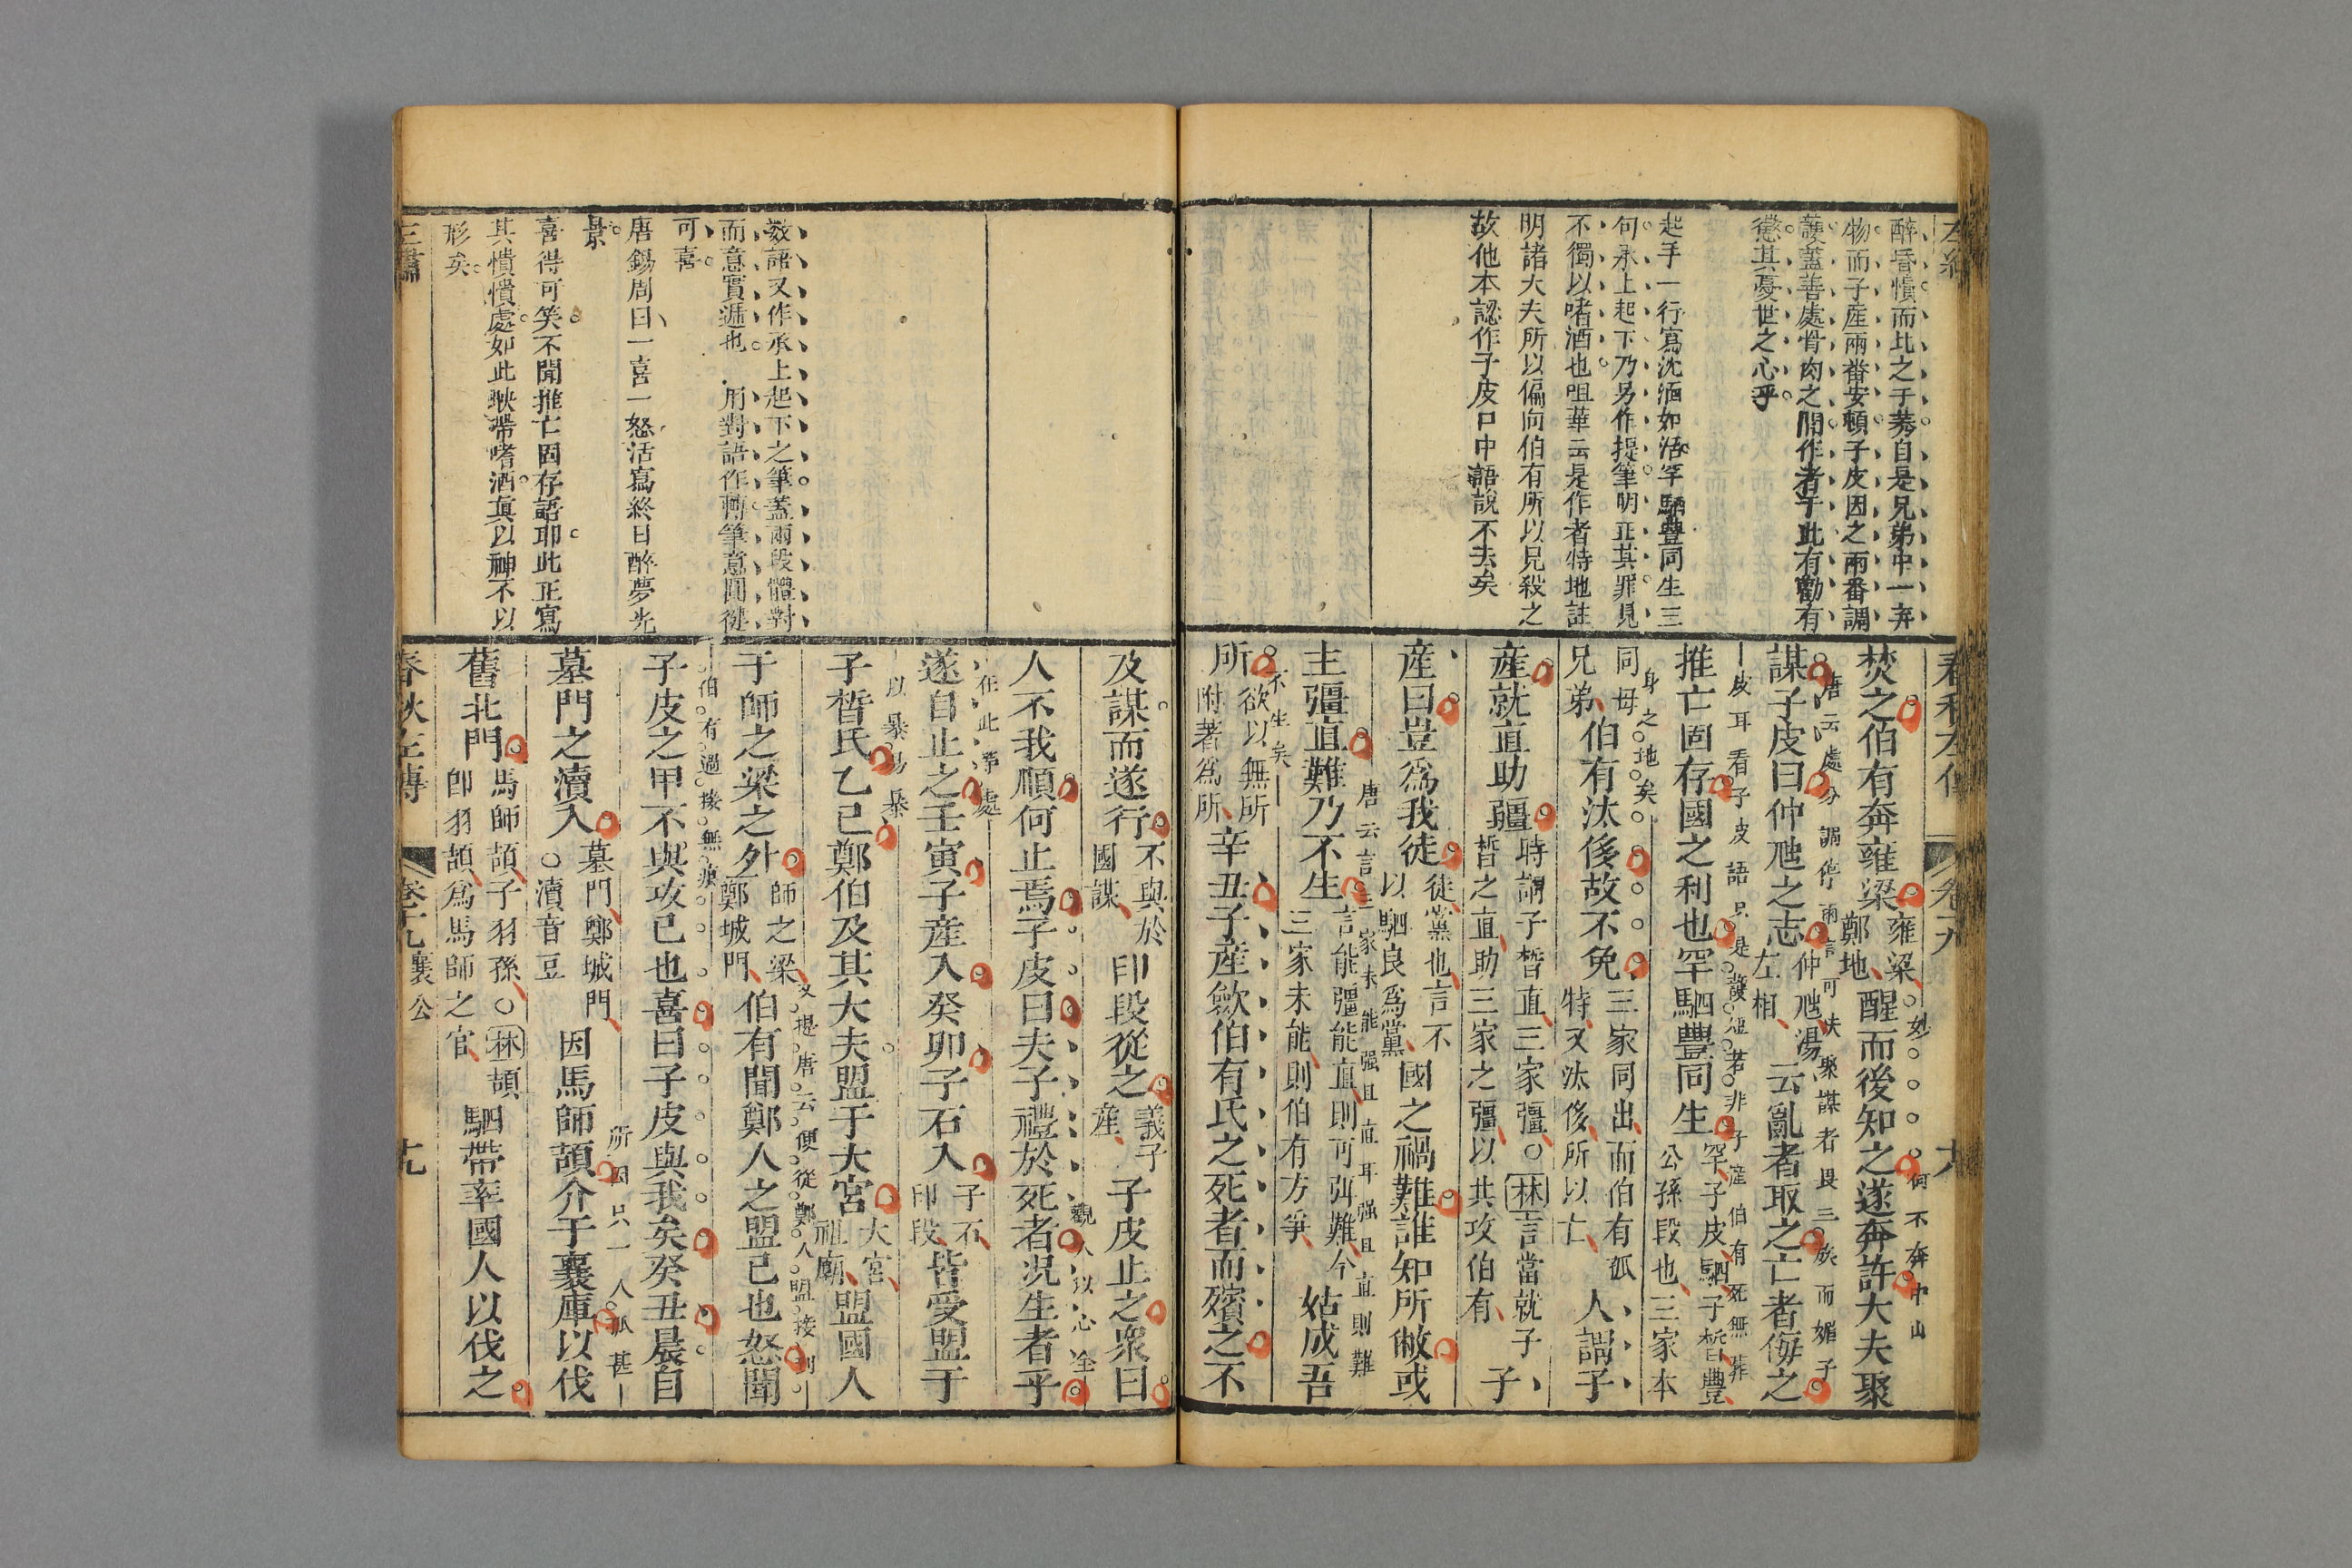 醉昏憒而比之于莠自是兄弟中一弃
物而子産兩番安頓子皮因之兩番調
護蓋善處骨肉之間作者于此有勸有
懲其憂世之心乎
起手一行寫沈湎如活罕駟豐同生三
句承上起下乃另作提筆明正其罪見
不獨以嗜酒也咀華云是作者特地註
明諸大夫所以偏向伯有所以見殺之
故他本認作子皮口中語說不去矣
焚之伯有奔雍梁
雍梁
鄭地
醒而後知之遂奔許大夫聚
妙
何不奔中山
謀子皮曰仲虺之志
仲虺湯
左相
云亂者取之亡者侮之
唐云處分調停兩言可決聚謀者畏三族而媚子
皮耳看子皮語只是發
推亡固存國之利也罕駟豐同生
罕子皮駟子晳豐
公孫段也三家本
若非子産伯有死無葬
身之地矣
同母
兄弟
伯有汰侈故不免
三家同出而伯有孤
特又汰侈所以亡
人謂子
産就直助彊
時謂子晳直三家彊○林言當就子
晳之直助三家之彊以共攻伯有
子
産曰豈爲我徒
徒黨也言不
以駟良爲黨
國之禍難誰知所敝或
主彊直難乃不生
言能彊能直則可弭難今
三家未能則伯有方爭
姑成吾
唐云言三家未能强且直耳强且直則難
不生矣
所
欲以無所
附著爲所
辛丑子産斂伯有氏之死者而殯之不
數語又作承上起下之筆蓋兩段體對
而意實遞也 用對語作轉筆意圓徤
可喜
唐錫周曰一喜一怒活寫終日醉夢光
景
喜得可笑不聞推亡固存語耶此正寫
其憒憒處如此映帶嗜酒眞以神不以
形矣
及謀而遂行
不與於
國謀
印段從之
義子
産
子皮止之衆曰
人不我順何止焉子皮曰夫子禮於死者况生者乎
觀人以心詮
在此爭處
遂自止之壬寅子産入癸卯子石入
子石
印段
皆受盟于
以暴易暴
子晳氏乙已鄭伯及其大夫盟于大宮
大宮
祖廟
盟國人
于師之梁之外
師之梁
鄭城門
伯有聞鄭人之盟已也怒聞
又提唐云便從鄭人盟接到
伯有過接無痕
子皮之甲不與攻已也喜曰子皮與我矣癸丑晨自
墓門之瀆入
墓門鄭城門
○瀆音豆
因馬師頡介于襄庫以伐
所因只一人孤甚
舊北門
馬師頡子羽孫○林頡
卽羽頡爲馬師之官
駟帶率國人以伐之
春秋左傳
卷十九襄公
十九